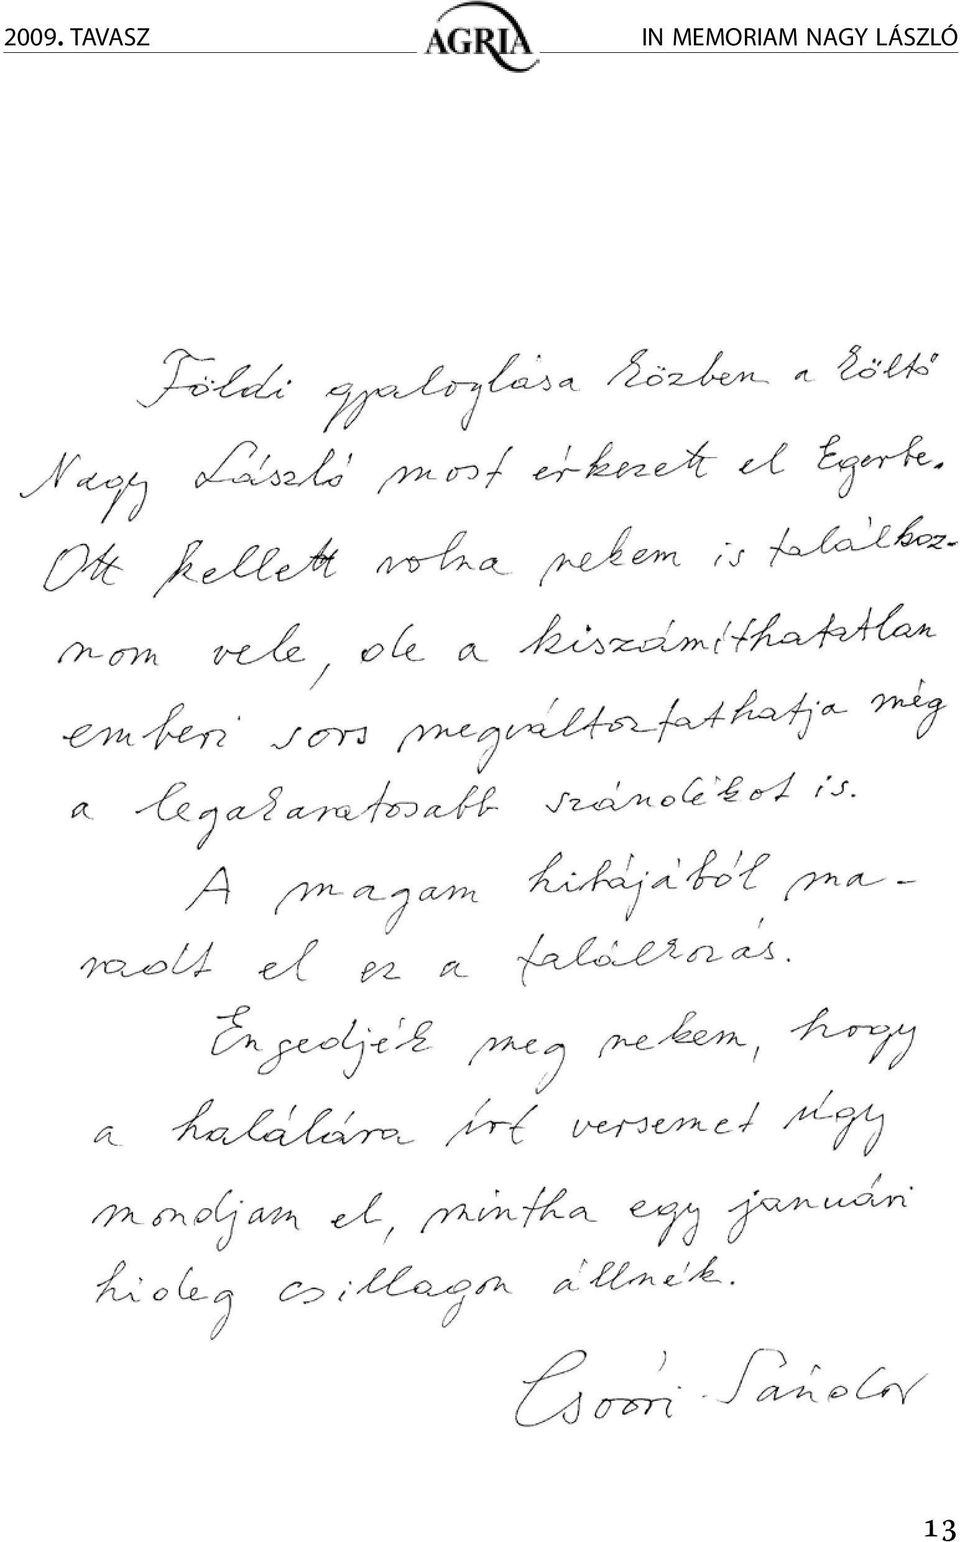 2009. TAVASZ AGRIA IN MEMORIAM NAGY LÁSZLÓ
Földi gyaloglása közben a költő
Nagy László most érkezett el Egerbe.
Ott kellett volna nekem is találkoz-
nom vele, de a kiszámíthatatlan
emberi sors megváltoztathatja még
a legakaratosabb szándékot is.
A magam hibájából ma-
radt el ez a találkozás.
Engedjék meg nekem, hogy
a halálára írt versemet úgy
mondjam el, mintha egy januári
hideg csillagon állnék.
Csoóri Sándor
13